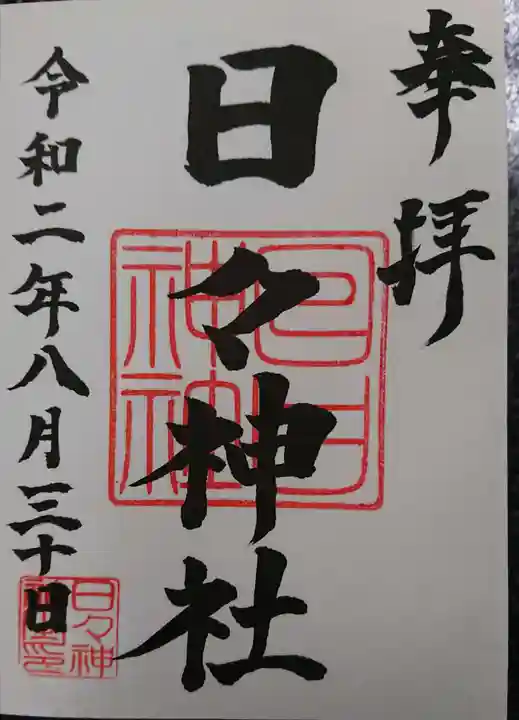 奉拝
日々神社
令和二年八月三十日
日日神社